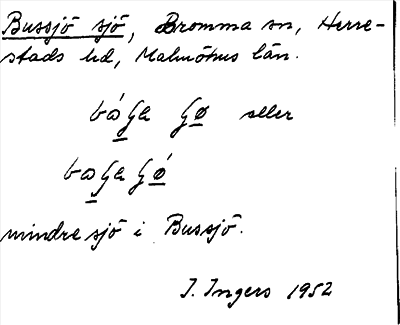 Bussjö sjö, Bromma sn, Herre-
stads hd, Malmöhus län.
eller
mindre sjö i Bussjö.
I. Ingers 1952